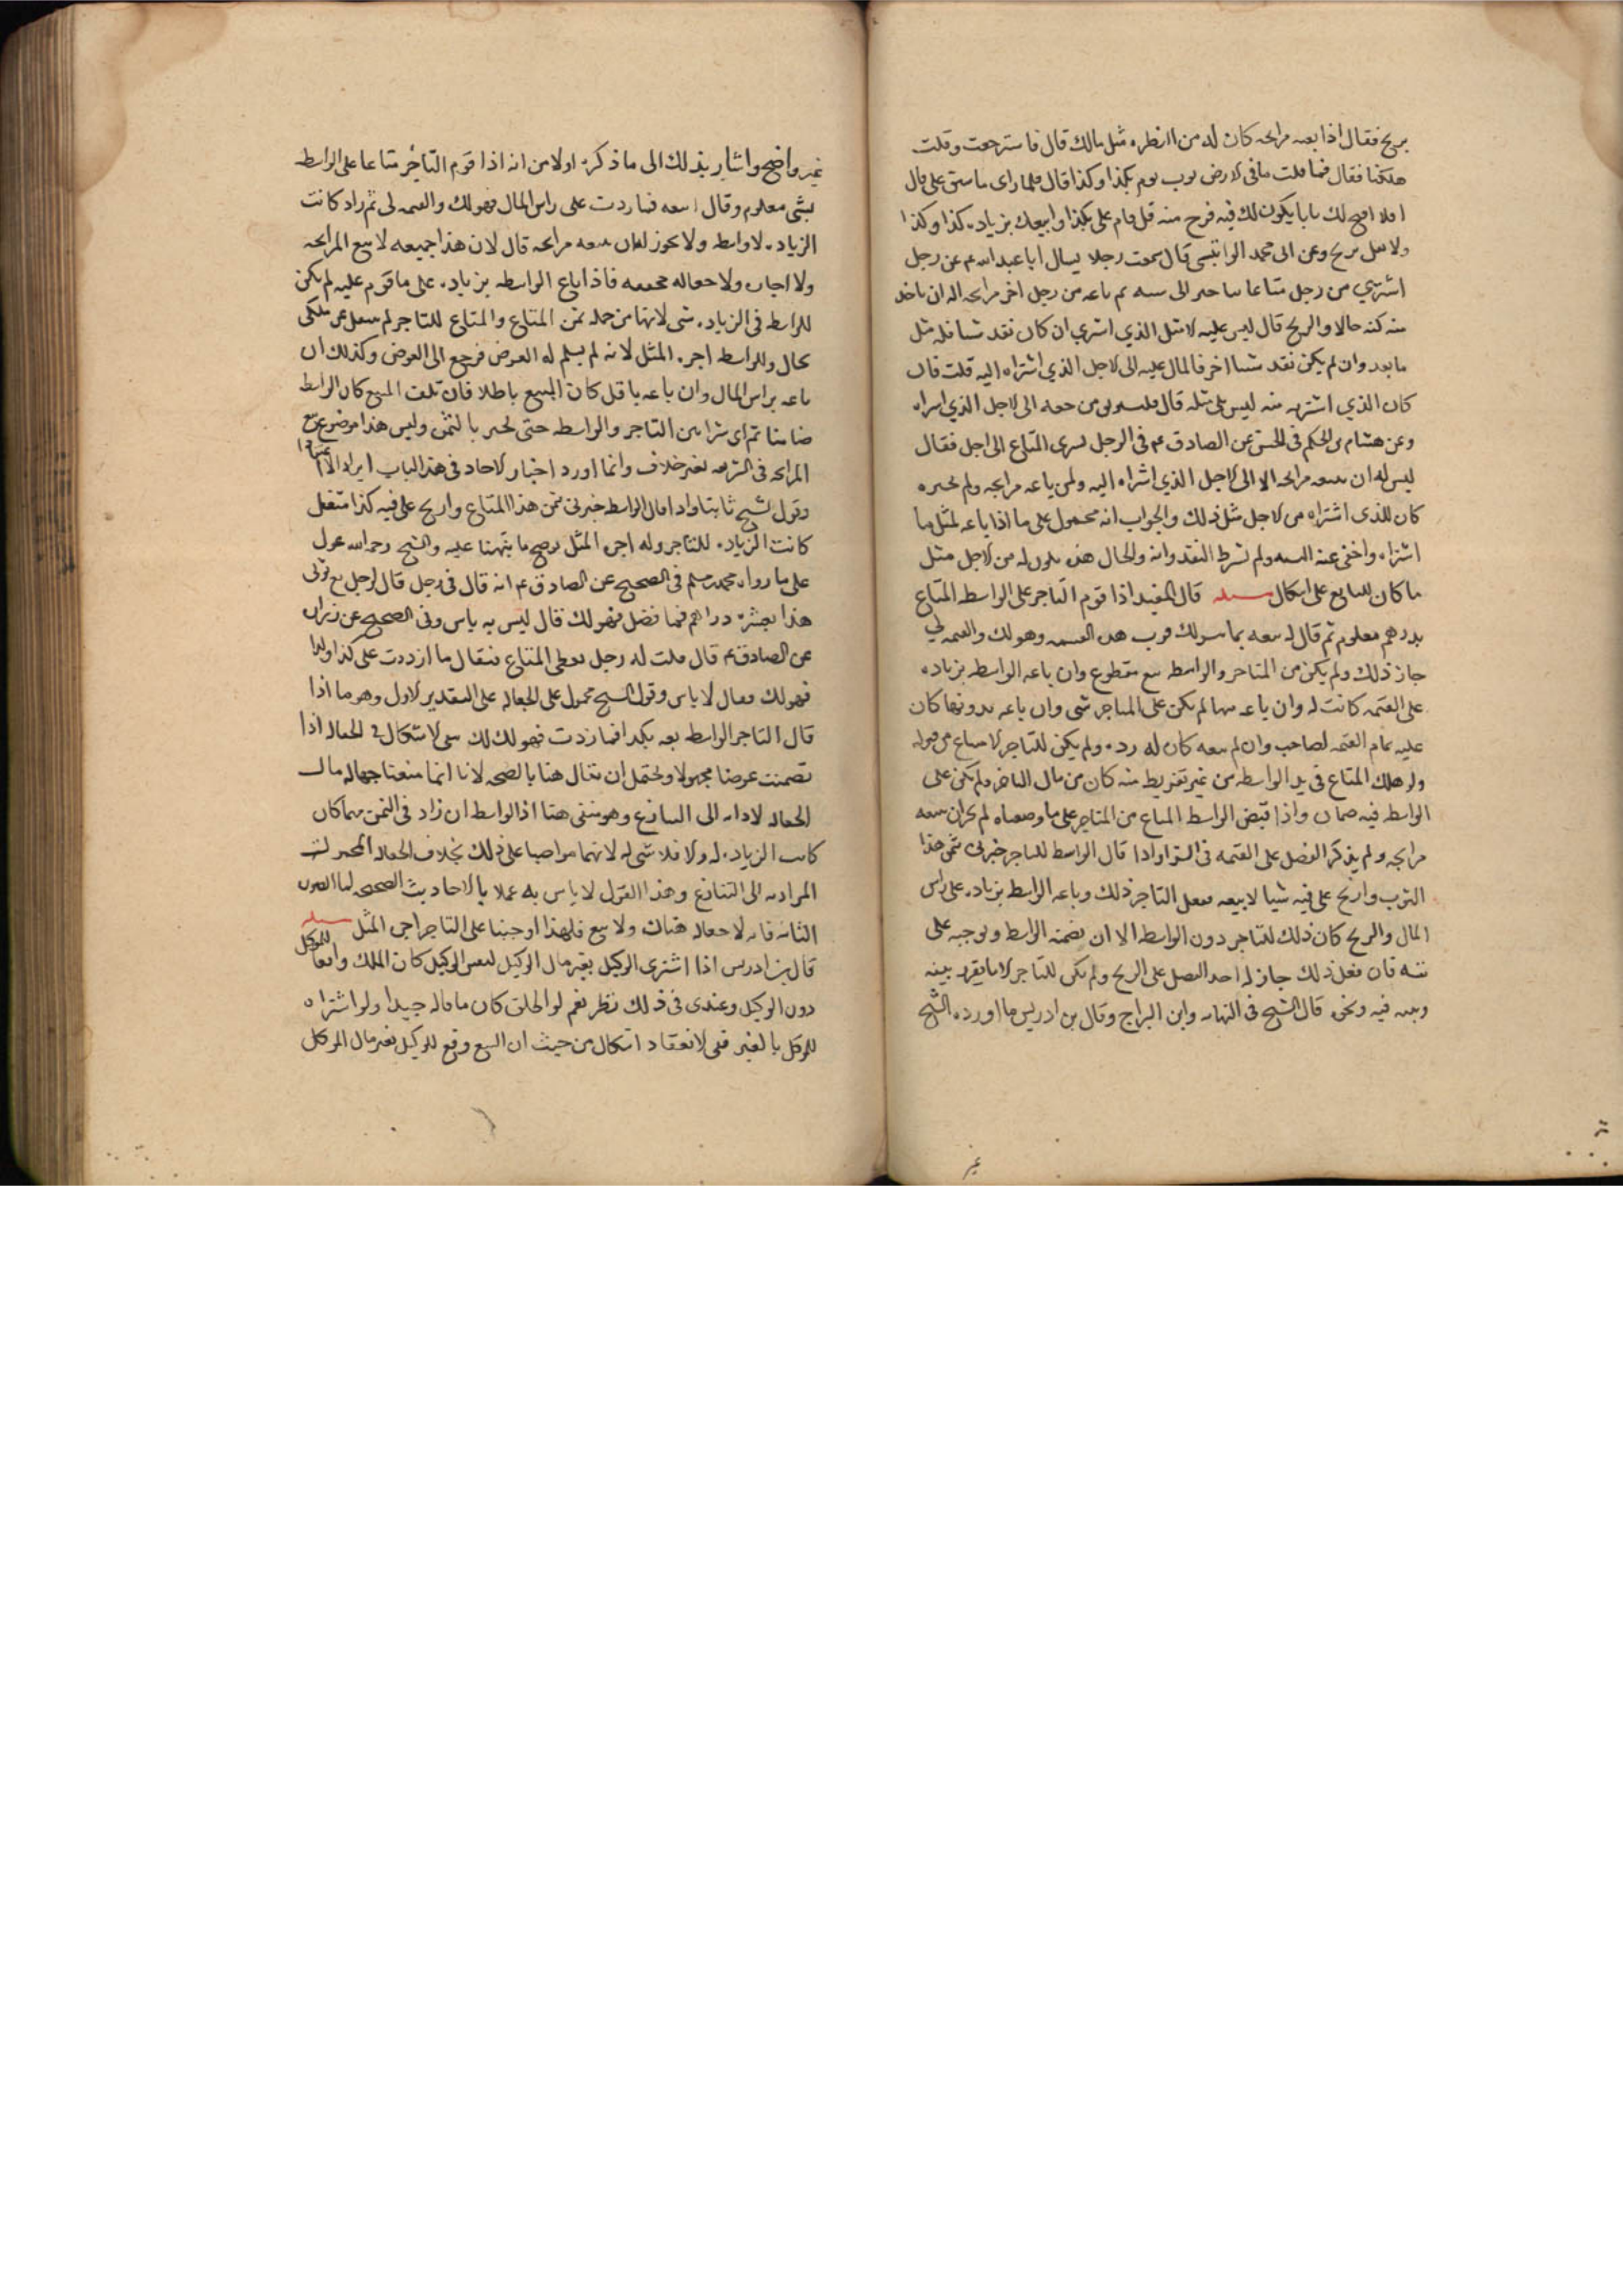 بربح فقال اذا بعته مرابحه كان له من النظره مثل مالك قال فاسترجعت وقلت
هلكنا فقال فما قلت ما في الارض ثوب يوم بكذا وكذا قال فلما راى ما شق على قال
افلا افتح لك بابا يكون لك فيه فرج منه قل قام على بكذا وابيعك بزياده كذا وكذا
ولا تقل بربح وعن ابى محمد الوابشى قال سمعت رجلا يسال ابا عبد الله عم عن رجل
اشترى من رجل متاعا بتاخير الى سنه ثم باعه من رجل اخر مرابحه اله ان ياخذ
منه ثمنه حالا والربح قال ليس عليه الا مثل الذي اشترى ان كان نقد شيا فله مثل
ما نقد وان لم يكن نقد شيا اخر فالمال عليه الى الاجل الذي اشتراه اليه قلت فان
كان الذي اشتريه منه ليس بملى مثله قال فليستوثق من حقه الى الاجل الذي اشتراه
وعن هشام بن الحكم في الحسن عن الصادق عم فى الرجل يشترى المتاع الى اجل فقال
ليس له ان يبيعه مرابحه الا الى الاجل الذي اشتراه اليه ولمن باعه مرابحه ولم يخبره
كان للذى اشتراه من الاجل مثل ذلك والجواب انه محمول على ما اذا باعه بمثل ما
اشتراه واخفى عنه النسيه ولم يشرط النقد وانه والحال هذه يكون له من الاجل مثل
ما كان للبايع على اشكال مسله قال المفيد اذا قوم التاجر على الواسطه المتاع
بدرهم معلوم ثم قال له بعه بما تيسر لك فوق هذه القيمه وهو لك والقيمه لي
جاز ذلك ولم يكن بين التاجر والواسطه بيع مقطوع وان باعه الواسطه بزياده
على القيمه كانت له وان باعه بها لم يكن على التاجر شى وان باعه بدونها كان
عليه تمام القيمه لصاحبه وان لم يبعه كان له رده ولم يكن للتاجر الامتناع من قبوله
ولو هلك المتاع فى يد الواسطه من غير تفريط منه كان من مال التاجر ولم يكن على
الواسطه فيه ضمان واذا قبض الواسطه المتاع من التاجر على ما وصفناه لم يجز ان يبيعه
مرابحه ولم يذكر الفضل على القيمه فى الشرا واذا قال الواسطه للتاجر خبرنى بثمن هذا
الثوب واربح على فيه شيا لابيعه ففعل التاجر ذلك وباعه الواسطه بزياده على راس
المال والربح كان ذلك للتاجر دون الواسطه الا ان يضمنه الواسطه ويوجبه على
نفسه فان فعل ذلك جاز له اخذ الفضل على الربح ولم يكن للتاجر الا ما تقرر بينه
وبينه فيه ونحوه قال الشيخ فى النهايه وابن البراج وقال بن ادريس ما اورده الشيخ
غير
غير واضح واشار بذلك الى ما ذكره اولا من انه اذا قوم التاجر متاعا على الواسطه
بشى معلوم وقال له بعه فما زدت على راس المال فهو لك والقيمه لى ثم زاد كانت
الزياده للواسطه ولا يجوز للعان يبيعه مرابحه قال لان هذا جميعه لا بيع المرابحه
ولا اجاره ولا جعاله محققه فاذا باع الواسطه بزياده على ما قوم عليه لم يكن
للواسطه فى الزياده شى لانها من جمله ثمن المتاع والمتاع للتاجر لم ينتقل عن ملكه
بحال وللواسطه اجره المثل لانه لم يسلم له العوض فرجع الى العوض وكذلك ان
باعه براس المال وان باعه باقل كان البيع باطلا فان تلف المبيع كان الواسطه
ضامنا ثم اى شرا بين التاجر والواسطه حتى يخبر بالثمن وليس هذا موضع بيع
المرابحه فى الشريعه بغير خلاف وانما اورد اخبار الاحاد فى هذا الباب ايرادا لا اعتقادا
وقول الشيخ ثابتا واذا قال الواسطه خبرنى بثمن هذا المتاع واربح على فيه كذا ففعل
كانت الزياده للتاجر وله اجره المثل يوضح ما نبهنا عليه والشيخ رحمه الله عول
على ما رواه محمد بن مسلم فى الصحيح عن الصادق عم انه قال فى رجل قال لرجل بع ثوبى
هذا بعشره دراهم فما فضل فهو لك فقال ليس به باس وفى الصحيح عن زراره
عن الصادق عم قال قلت له رجل يعطى المتاع فيقال ما ازددت على كذا وكذا
فهو لك فقال لا باس وقول الشيخ محمول على الجعاله على التقدير الاول وهو ما اذا
قال التاجر للواسطه بعه بكذا فما زدت فهو لك بقى الاشكال فى الجعاله اذا
تضمنت عوضا مجهولا ويحتمل ان يقال هنا بالصحه لانا انما منعنا جهاله مال
الجعاله لادائه الى التنازع وهو منتفى هنا اذ الواسطه ان زاد فى الثمن مهما كان
كانت الزياده له والا فلا شى له لانهما تراضيا على ذلك بخلاف الجعاله المجهوله
المؤديه الى التنازع وهذا القول لا باس به عملا بالاحاديث الصحيحه اما الصوره
الثانيه فانه لا جعاله هناك ولا بيع فلهذا اوجبنا على التاجر اجره المثل مسله
قال بن ادريس اذا اشترى الوكيل بغير مال الوكيل لنفس الوكيل كان الملك واقعا للموكل
دون الوكيل وعندى فى ذلك نظر نعم لو اطلق كان ما قاله جيدا ولو اشتراه
للموكل بالغير ففى الانعقاد اشكال من حيث ان البيع وقع للوكيل بغير مال الموكل